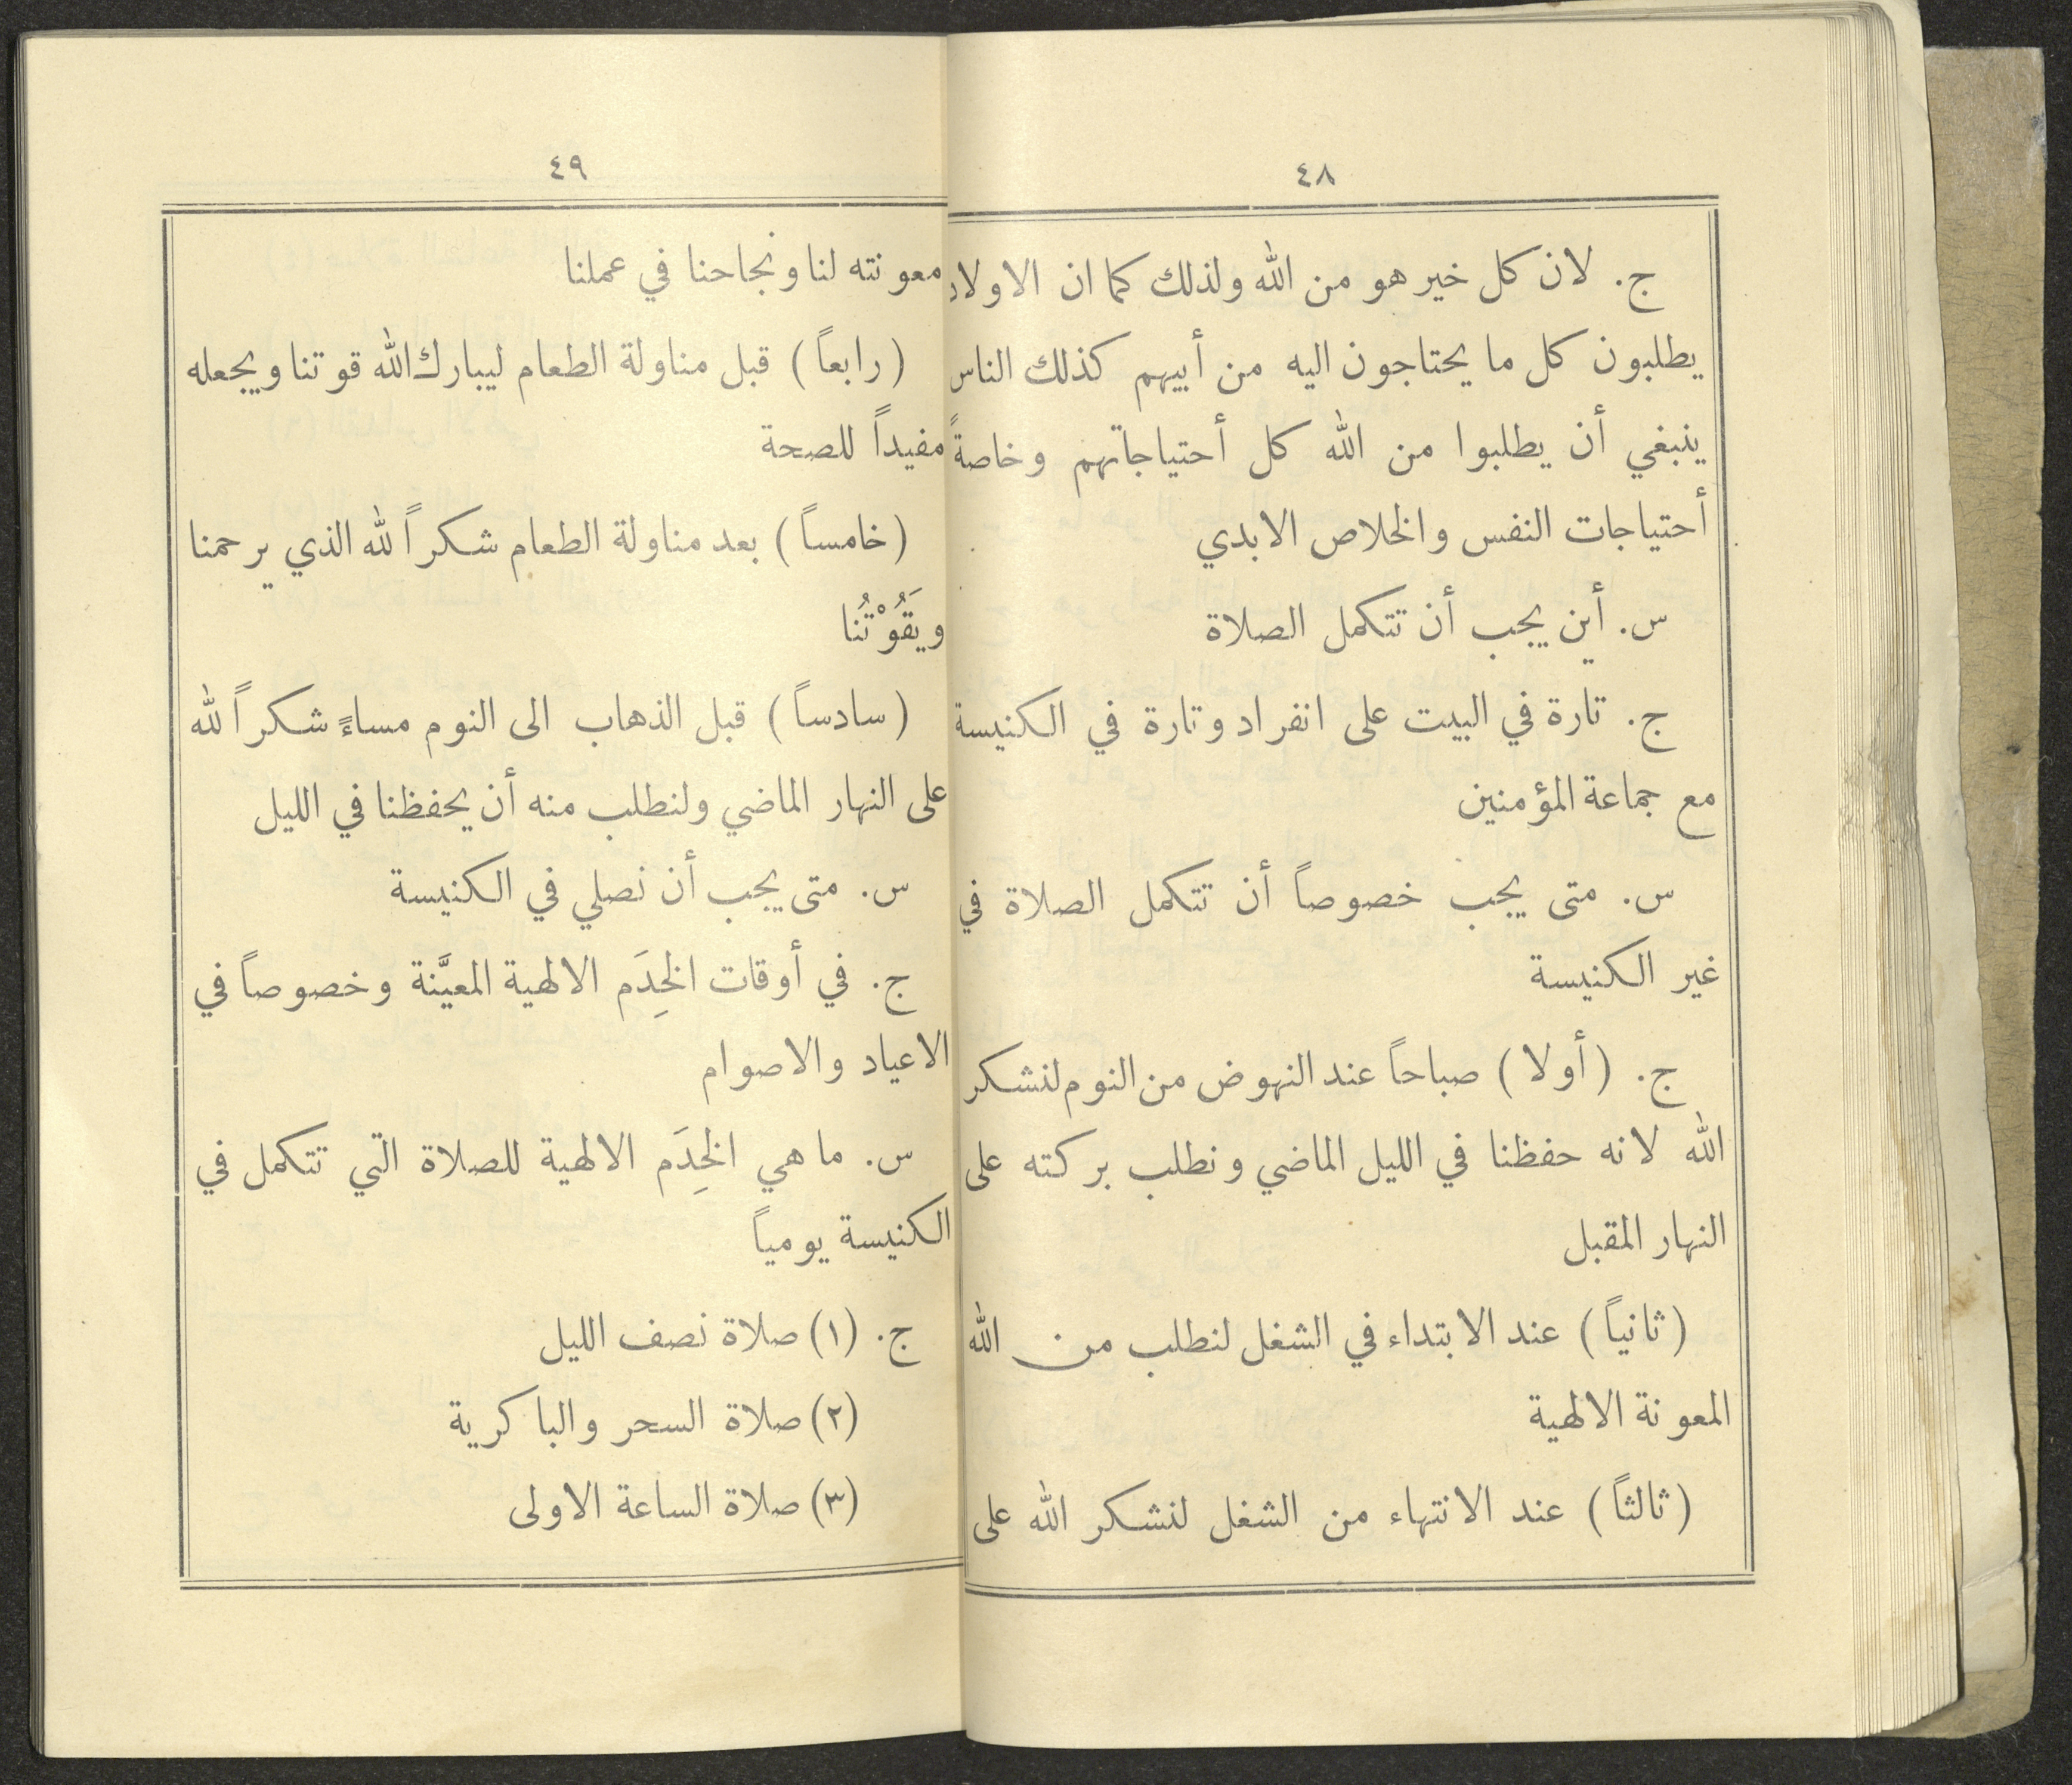 ٤٨
ج. لان كل خير هو من الله ولذلك كما ان الاولاد
يطلبون كل ما يحتاجون اليه من أبيهم كذلك الناس
ينبغي أن يطلبوا من الله كل أحتياجاتهم وخاصةً
أحتياجات النفس والخلاص الابدي
س. أين يجب أن تتكمل الصلاة
ج. تارة في البيت على انفراد وتارة في الكنيسة
مع جماعة المؤمنين
س. متى يجب خصوصاً أن تتكمل الصلاة في
غير الكنيسة
ج. (أولا) صباحاً عند النهوض من النوم لنشكر
الله لانه حفظنا في الليل الماضي ونطلب بركته على
النهار المقبل
(ثانياً) عند الابتداء في الشغل لنطلب من الله
المعونة الالهية
(ثالثاً) عند الانتهاء من الشغل لنشكر الله على
٤٩
معونته لنا ونجاحنا في عملنا
(رابعاً) قبل مناولة الطعام ليبارك الله قوتنا ويجعله
مفيداً للصحة
(خامساً) بعد مناولة الطعام شكراً لله الذي يرحمنا
ويَقُوْتُنا
(سادساً) قبل الذهاب الى النوم مساءً شكراً لله
على النهار الماضي ولنطلب منه أن يحفظنا في الليل
س. متى يجب أن نصلي في الكنيسة
ج. في أوقات الخِدَم الالهية المعيَّنة وخصوصاً في
الاعياد والاصوام
س. ما هي الخِدَم الالهية للصلاة التي تتكمل في
الكنيسة يومياً
ج. (١) صلاة نصف الليل
(٢) صلاة السحر والباكرية
(٣) صلاة الساعة الاولى